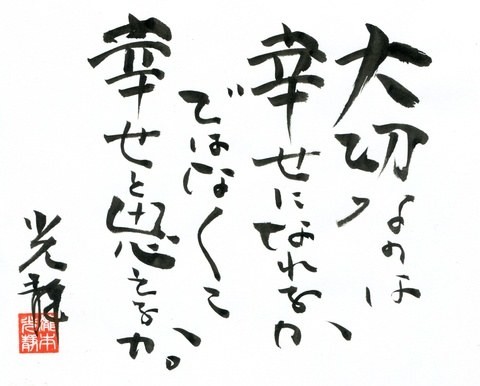 大切なのは
幸せになれるか、
ではなくて、
幸せと思えるか。
光静